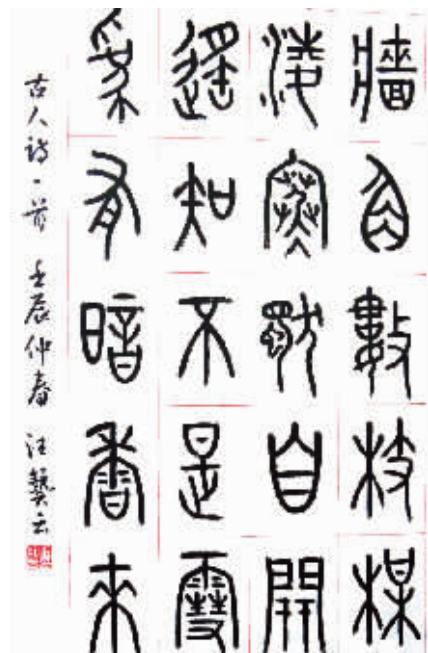 牆角數枝楳
淩寒獨自開
遙知不是雪
為有暗香來
古人詩一首 壬辰仲春 汪藝云